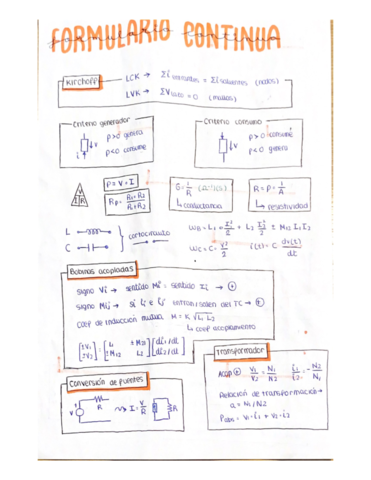 FORMULARIO CONTINUA
Kirchoff
LCK → Σi entrantes = Σi salientes (nodos)
LVK → Σv lazo = 0 (mallas)
Criterio generador
p>0 genera
p<0 consume
v
i
Criterio consumo
p>0 consume
p<0 genera
v
V
I R
P = V · I
Rp = R1 · R2 / R1 + R2
G = 1/R
↳ conductancia
↳ resistividad
L
C
cortocircuito
i(t) = C dv(t)/dt
Bobinas acopladas
signo Vi → sentido Mi: sentido Ii → +
signo Mij → si Ii e Ij entran/salen del TC → +
Coef de inducción mutua M = K √L1 L2
↳ coef acoplamiento
[±V1 ±V2] = [L1 ±M12 ±M12 L2] [di1/dt di2/dt]
Transformador
Acop + V1/V2 = N1/N2 i1/i2 = -N2/N1
Relación de transformación →
a = N1/N2
Pabs = v1·i1 + v2·i2
Conversión de fuentes
R
V
I = V/R
R